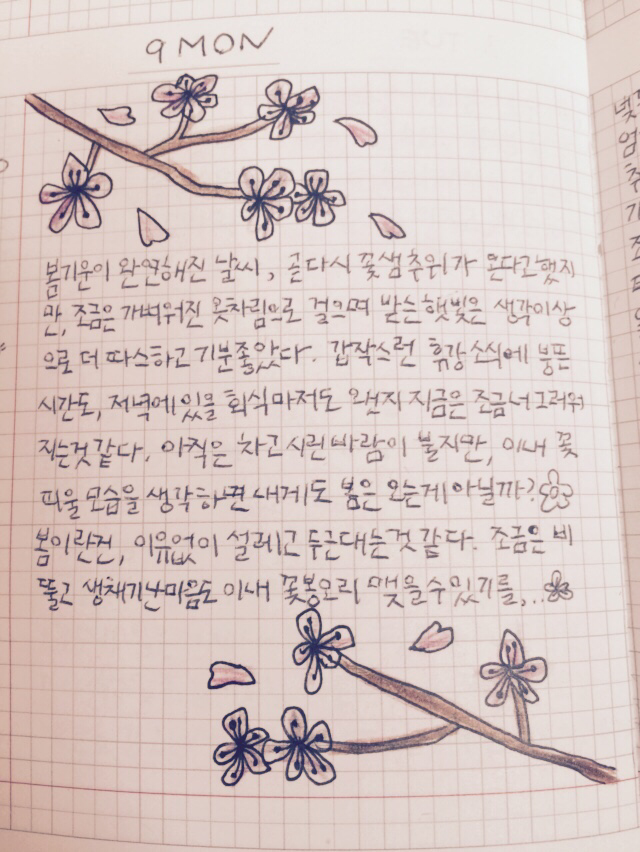 9 MON
봄기운이 완연해진 날씨, 곧다시 꽃샘추위가 온다곤했지
만, 조금은 가벼워진 옷차림으로 걸으며 받는 햇빛은 생각이상
으로 더 따스하고 기분좋았다. 갑작스런 휴강소식에 붕뜬
시간도, 저녁에있을 회식마저도 왠지 지금은 조금 너그러워
지는것같다. 아직은 차고시린바람이 불지만, 이내 꽃
피울 모습을 생각하면 내게도 봄은 오는게아닐까?
봄이란건, 이유없이 설레고 두근대는것 같다. 조금은 비
뚤고 생채기난마음도 이내 꽃봉오리 맺을수있기를,..